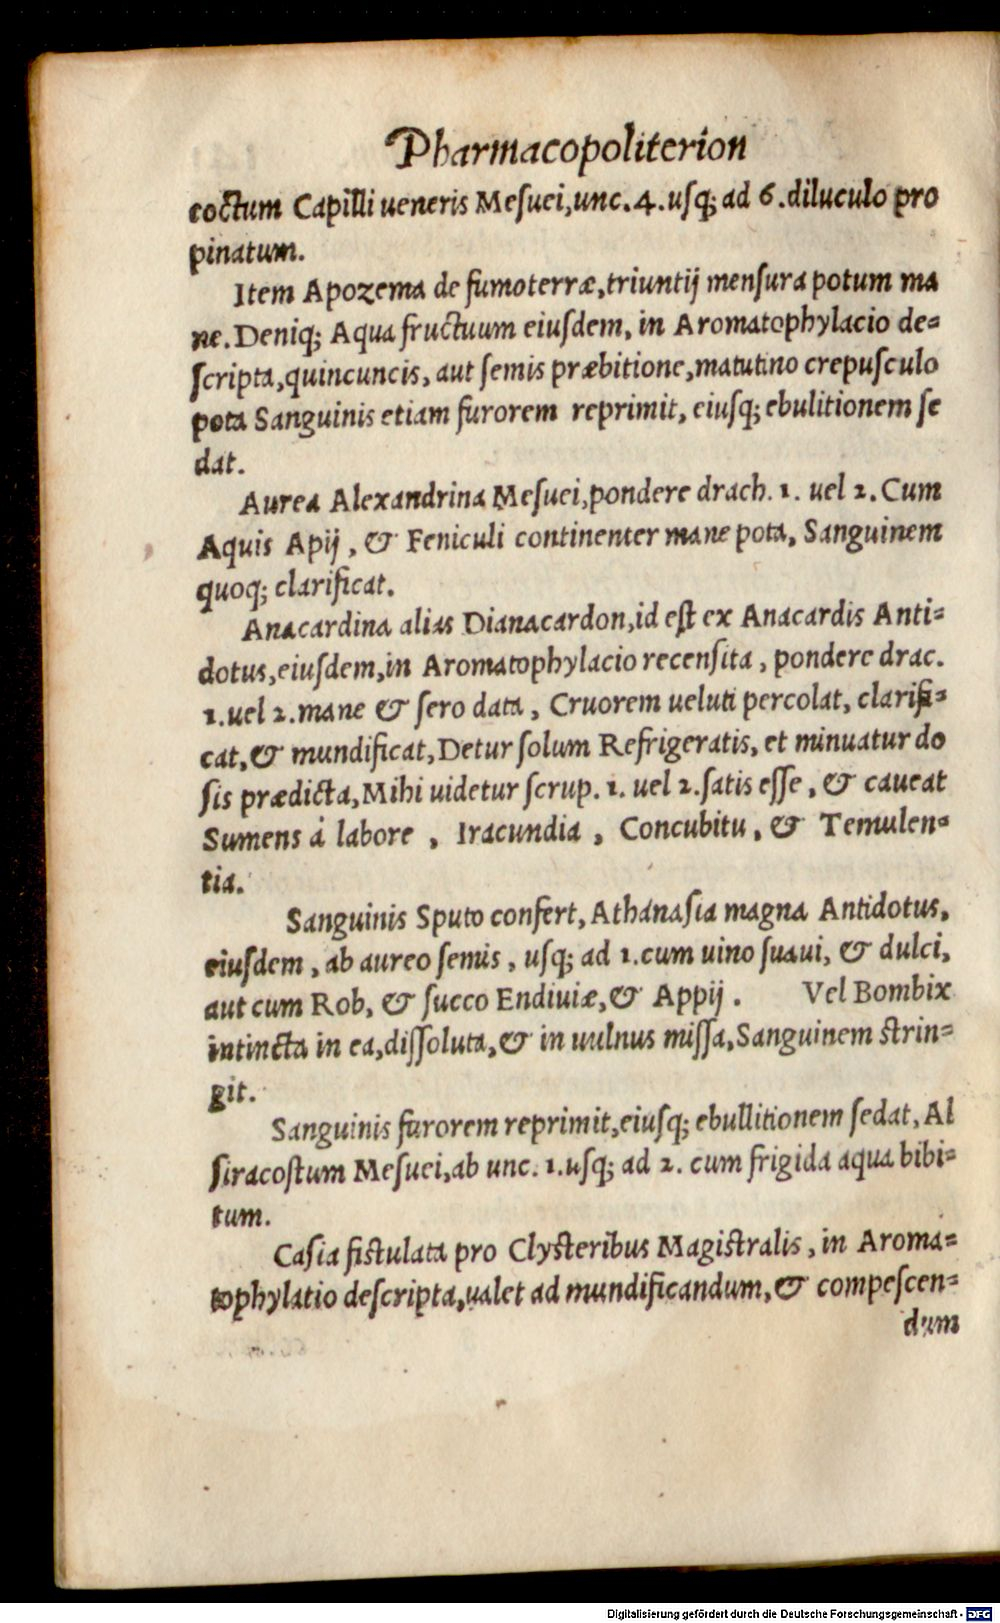 Pharmacopoliterion
coctum Capilli ueneris Mesuei,unc.4.usq; ad 6.diluculo pro
pinatum.
Item Apozema de fumoterræ,triuntij mensura potum ma
ne.Deniq; Aqua fructuum eiusdem, in Aromatophylacio de=
scripta,quincuncis, aut semis præbitione,matutino crepusculo
pota Sanguinis etiam furorem reprimit, eiusq; ebulitionem se
dat.
Aurea Alexandrina Mesuei,pondere drach. 1. uel 2. Cum
Aquis Apij, & Feniculi continenter mane pota, Sanguinem
quoq; clarificat.
Anacardina alias Dianacardon,id est ex Anacardis Anti=
dotus,eiusdem,in Aromatophylacio recensita, pondere drac.
1.uel 2.mane & sero data, Cruorem ueluti percolat, clarifi=
cat,& mundificat,Detur solum Refrigeratis, et minuatur do
sis prædicta,Mihi uidetur scrup. 1. uel 2.satis esse, & caueat
Sumens á labore, Iracundia, Concubitu, & Temulen=
tia.
Sanguinis Sputo confert, Athánasia magna Antidotus,
eiusdem, ab aureo semis, usq; ad 1.cum uino suaui, & dulci,
aut cum Rob, & succo Endiuiæ,& Appij. Vel Bombix
intincta in ea,dissoluta,& in uulnus missa,Sanguinem strin=
git.
Sanguinis furorem reprimit,eiusq; ebullitionem sedat, Al
siracostum Mesuei,ab unc. 1.usq; ad 2. cum frigida aqua bibi=
tum.
Casia fistulata pro Clysteribus Magistralis, in Aroma=
tophylatio descripta,ualet ad mundificandum,& compescen=
dum
Digitalisierung gefördert durch die Deutsche Forschungsgemeinschaft - DFG